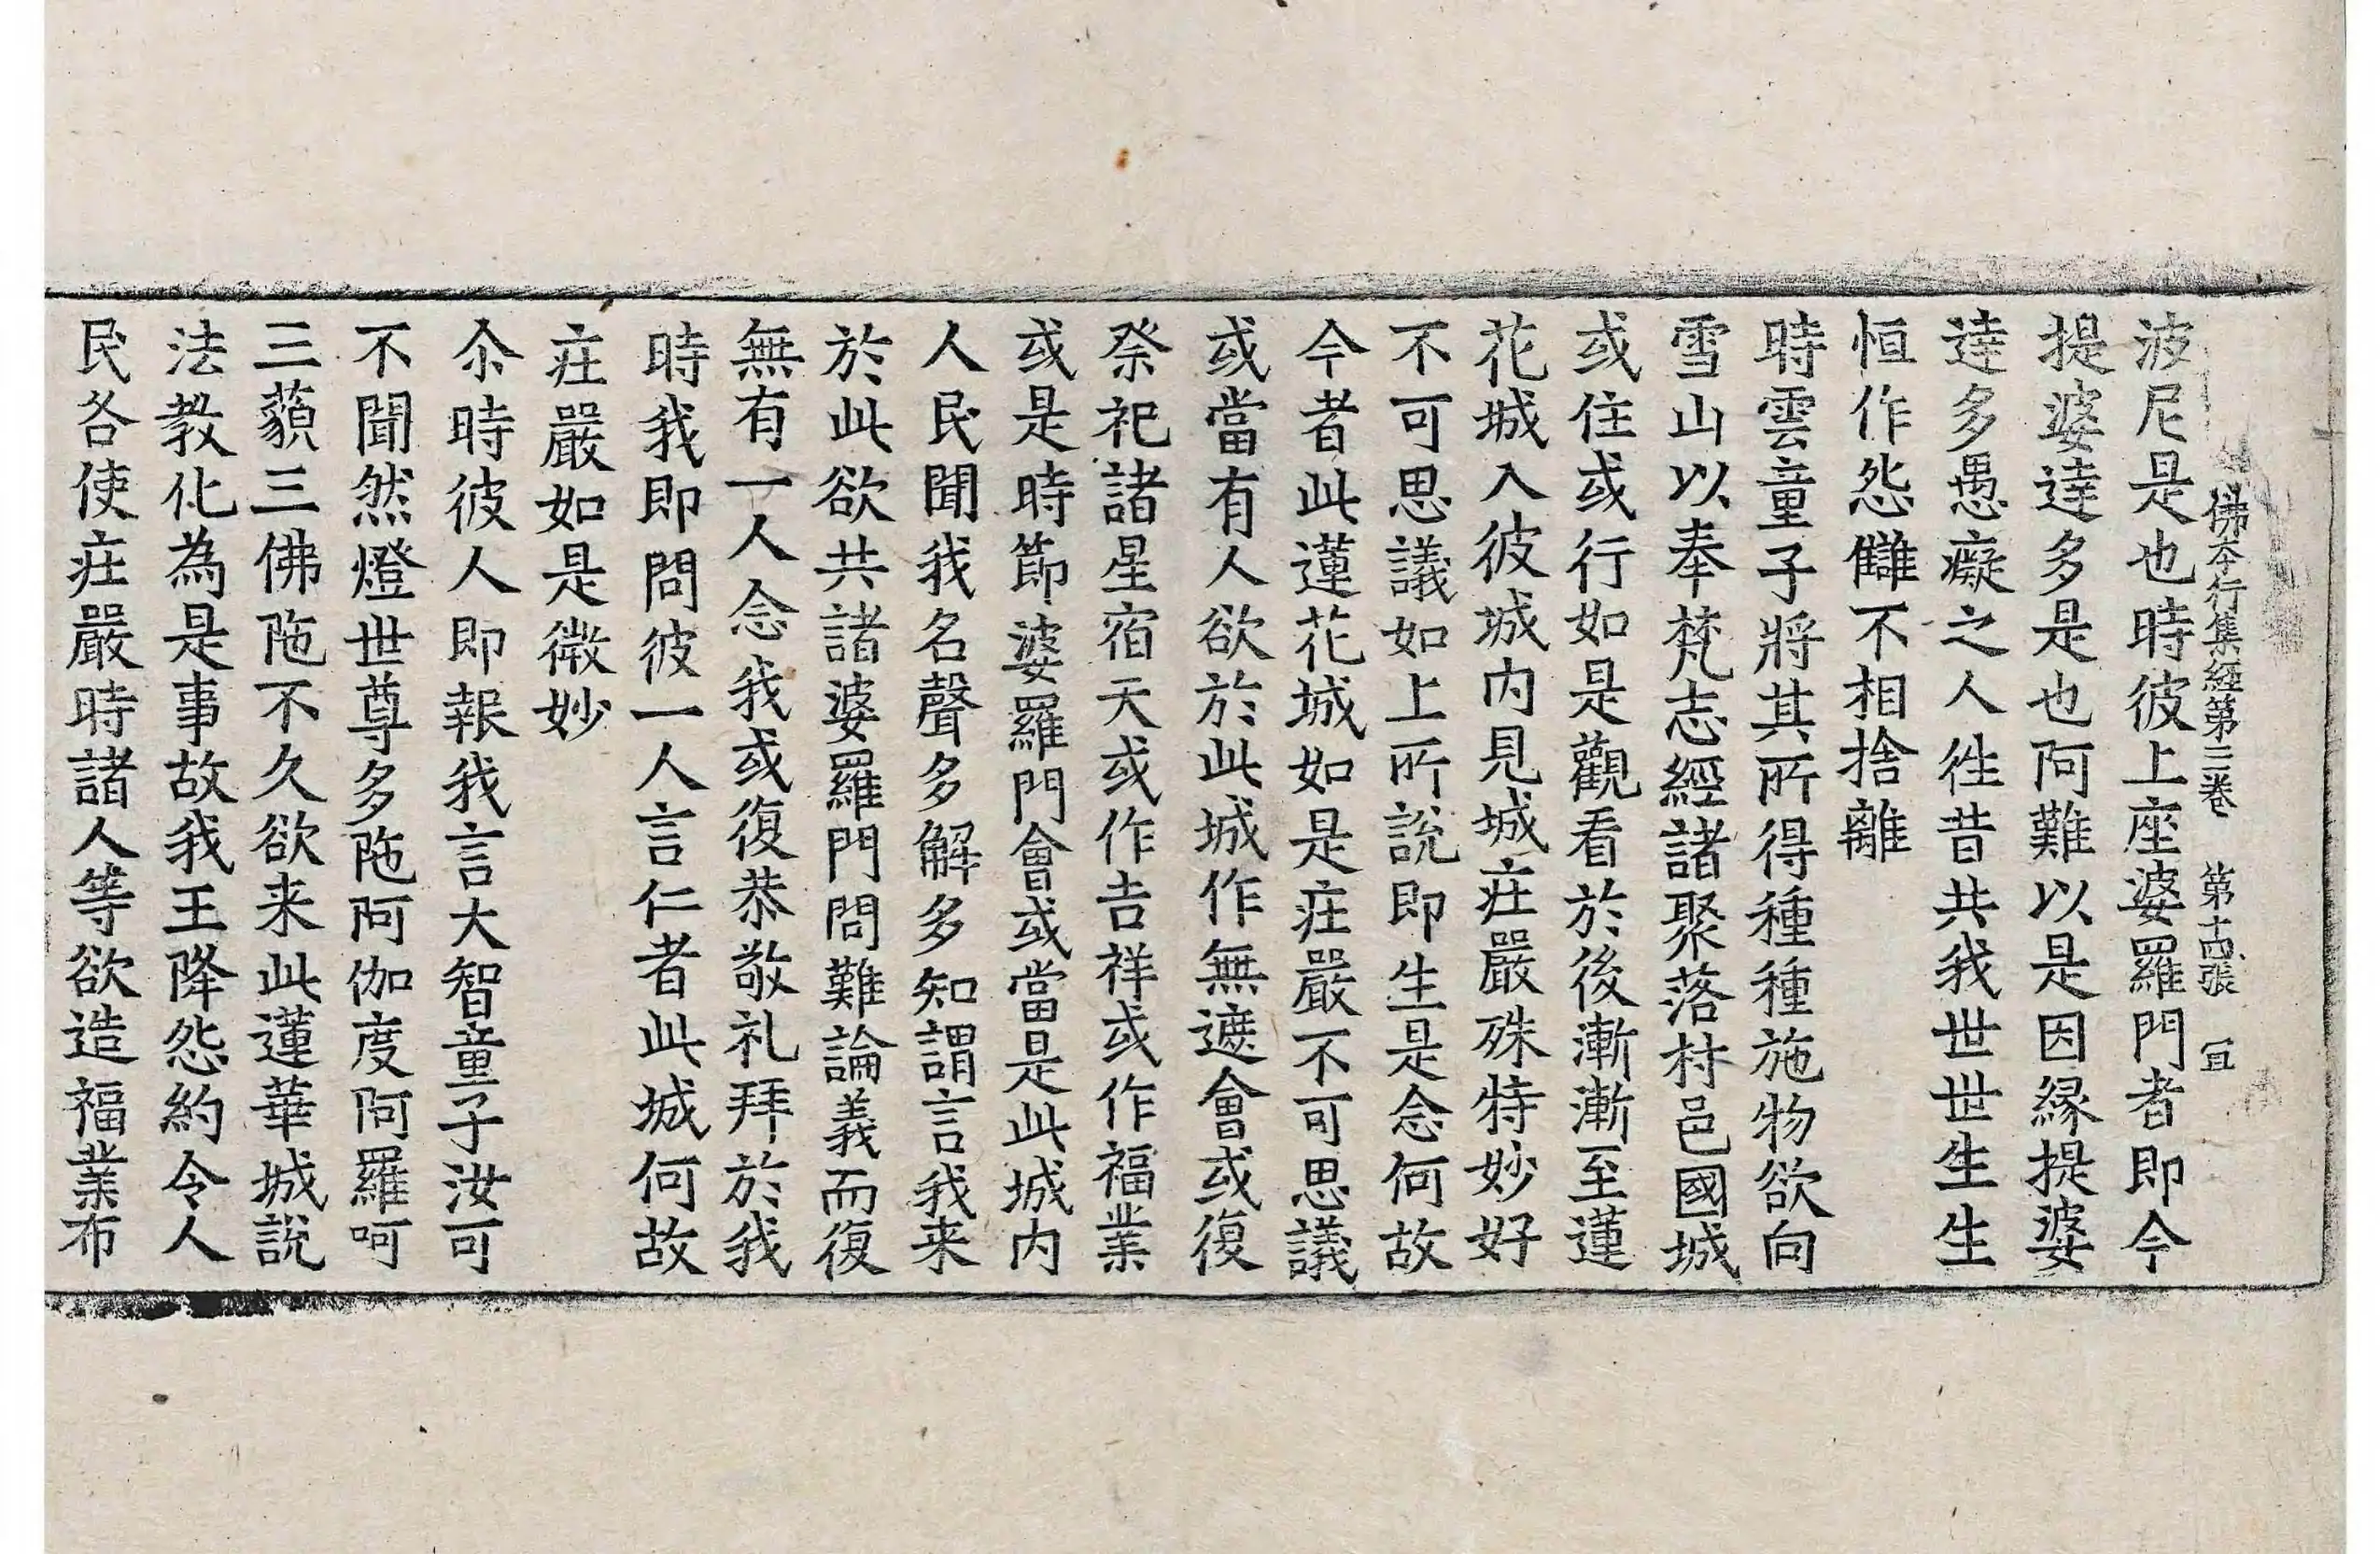 佛本行集經第三卷　第十四張　冝
波尼是也時彼上座婆羅門者即今
提婆達多是也阿難以是因縁提婆
達多愚癡之人徃昔共我世世生生
恒作怨讎不相捨離
時雲童子將其所得種種施物欲向
雪山以奉梵志經諸聚落村邑國城
或住或行如是觀看於後漸漸至蓮
花城入彼城內見城庄嚴殊特妙好
不可思議如上所說即生是念何故
今者此蓮花城如是庄嚴不可思議
或當有人欲於此城作無遮會或復
祭祀諸星宿天或作吉祥或作福業
或是時節婆羅門會或當是此城內
人民聞我名聲多解多知謂言我来
於此欲共諸婆羅門問難論義而復
無有一人念我或復恭敬礼拜於我
時我即問彼一人言仁者此城何故
庄嚴如是微妙
尒時彼人即報我言大智童子汝可
不聞然燈世尊多陁阿伽度阿羅呵
三藐三佛陁不久欲来此蓮華城說
法教化為是事故我王降怨約令人
民各使庄嚴時諸人等欲造福業布